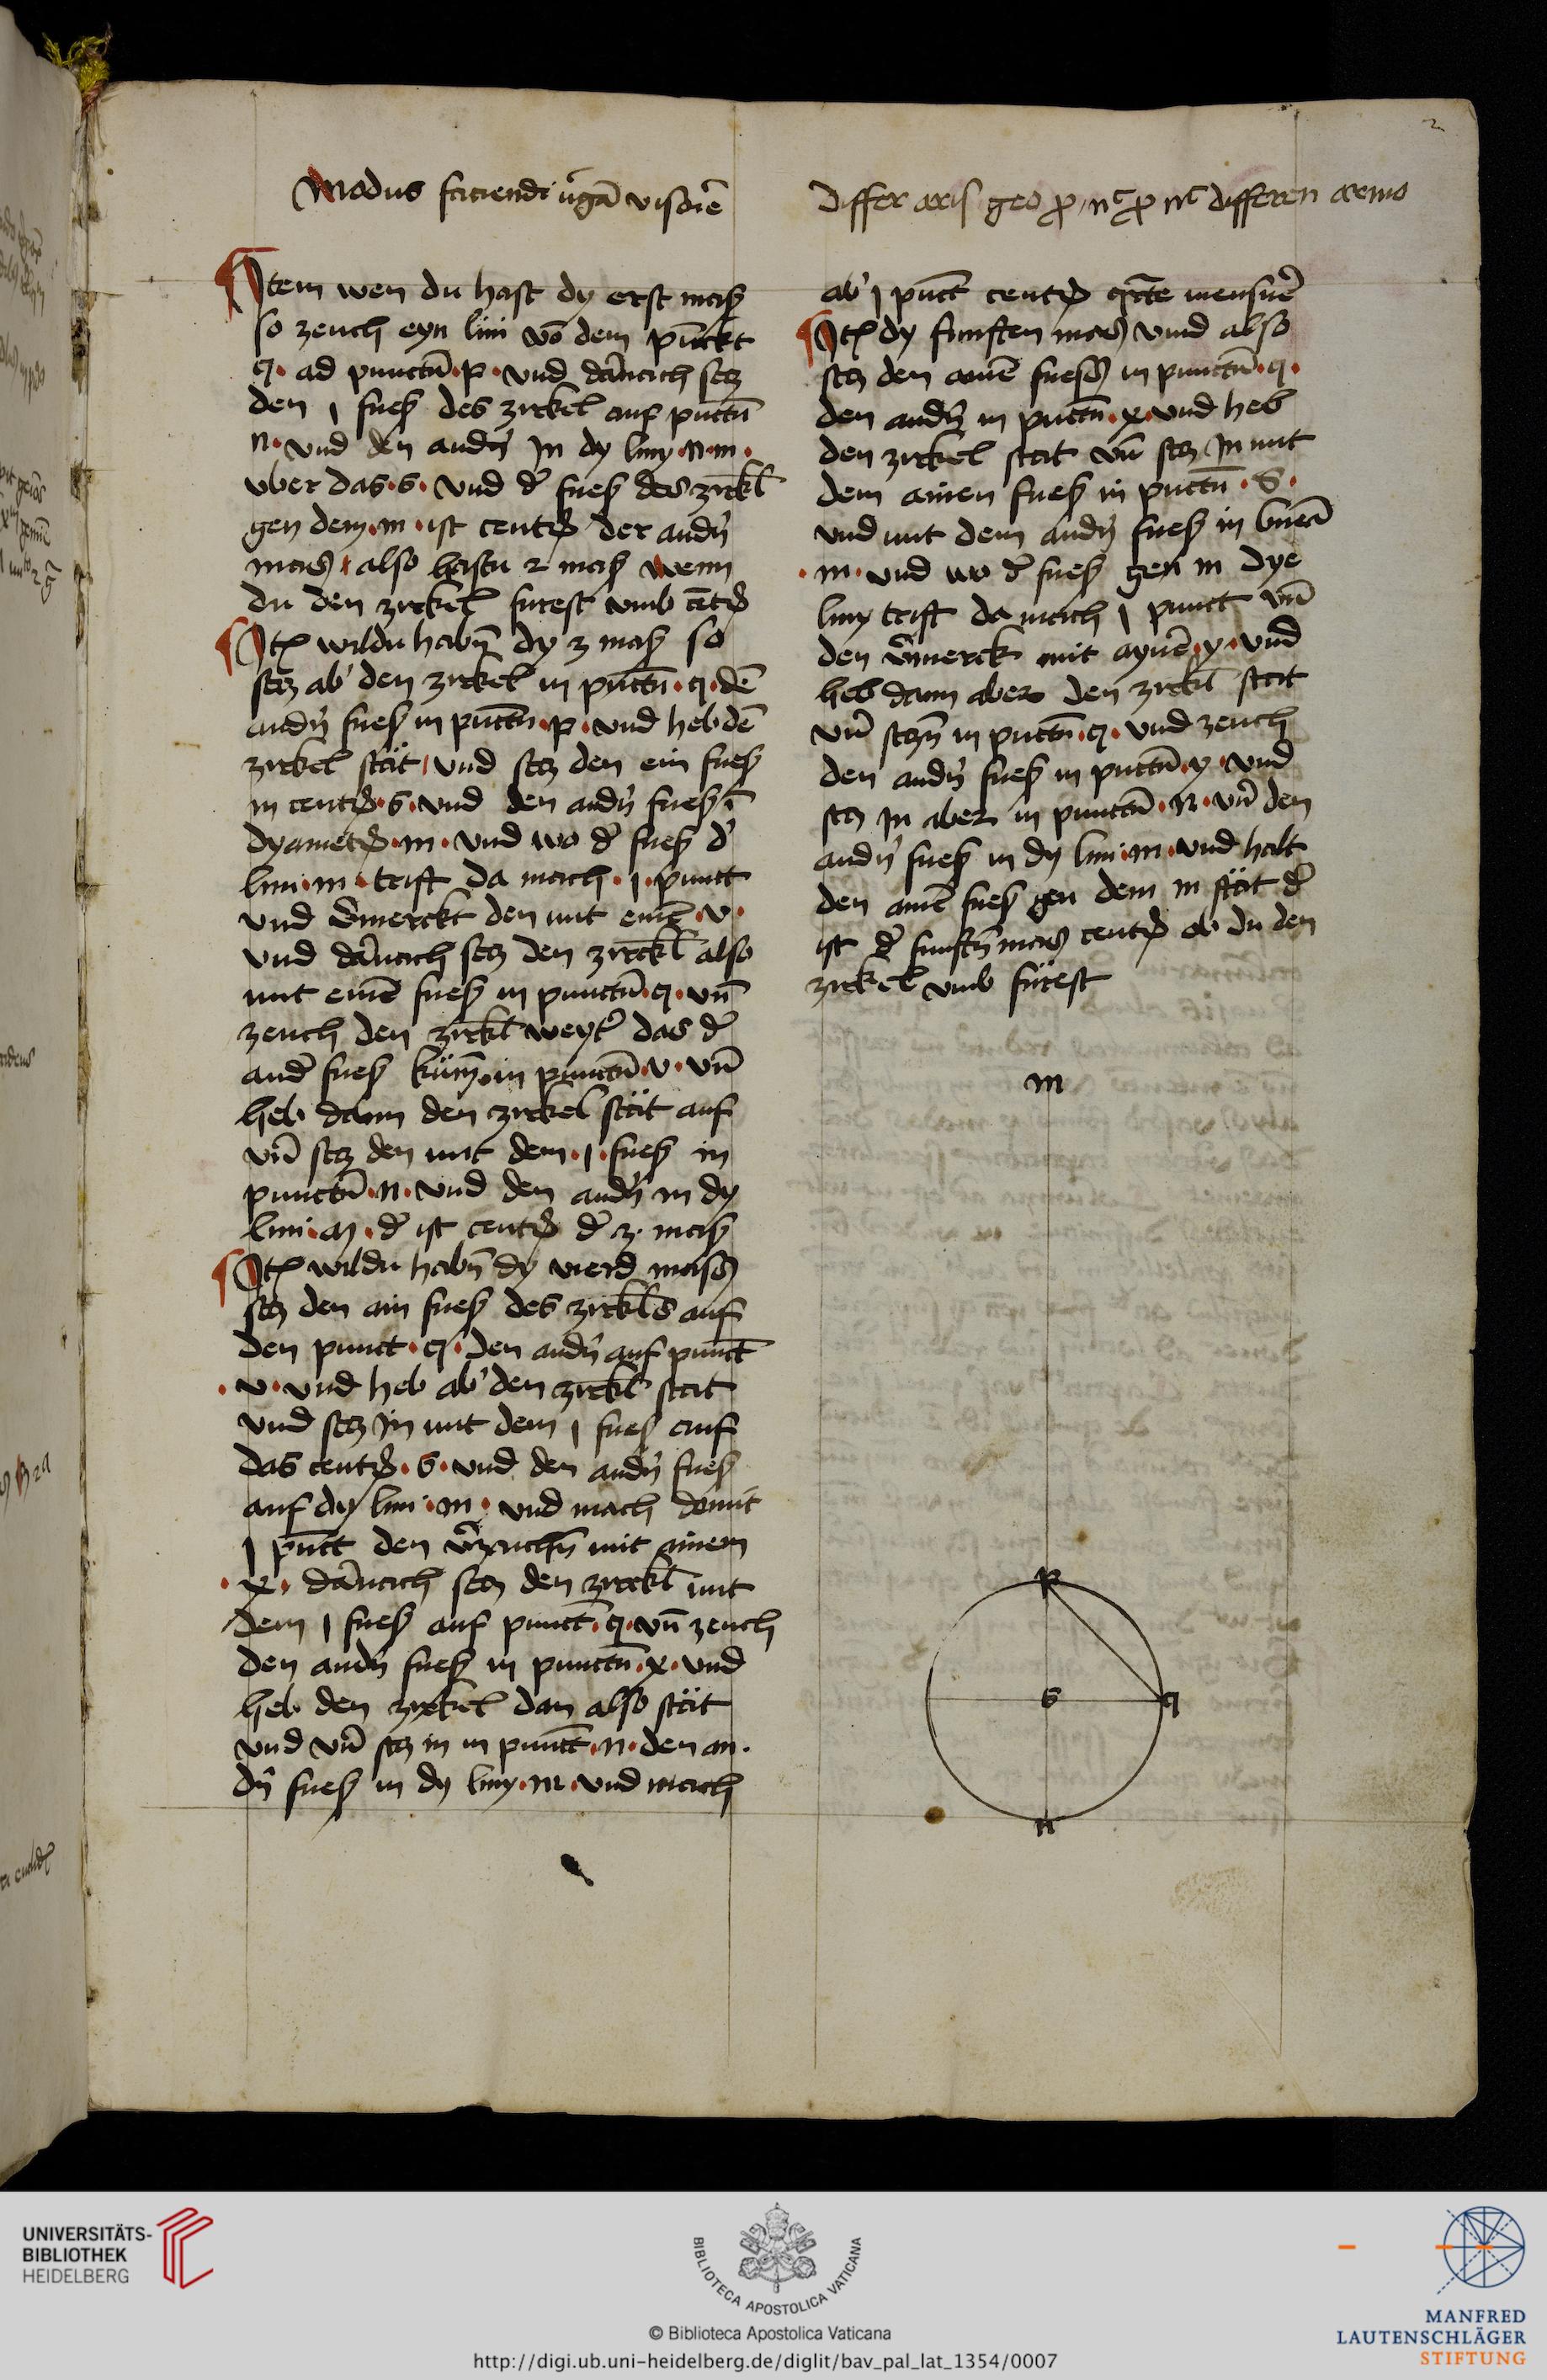 Modus faciendi v̊gā visorē
Jtem wen du hast dy erst masz
so zeuch eyn lini vō dem pūnckt
q. ad punctū .p. vnd dānach secz
den j fuesz des zirkel auf pūctū
n. vnd den andn̄ Jn dy liny .n.m.
vber das .s. vnd d' fuesz des zirckl
gen dem .m. ist centrū der andn̄
masz also hastu 2 masz wenn
du den zirkel furest vmb cētrū
Jtē wildu habn̄ dy 3 masz so
secz ab' den zirkel in pūctū .q. dē
andn̄ fuesz in pūctū .p. vnd heb dē
zirkel stät vnd secz den ein fuesz
in centrū .s. vnd den andn̄ fuesz ī
dyametrū .m. vnd wo d' fuesz d'
lini .m. trift da mach .j. punct
vnd v̄merckt den mit einē .v.
vnd dānach secz den zirckl also
mit einē fuesz in punctū .q. vn̄
zeuch den zirckl weyt' das d'
and' fuesz kūm in punctū .v. vn̄
heb dann den zirkel stät auf
vn̄ secz den mit dem .j. fuesz in
punctū .n. vnd den andn̄ in dy
lini .m. d' ist centrū d' 3. masz
Jtē wildu habn̄ dy vierd masz
secz den ain fuesz des zirckls auf
den punct .q. den andn̄ auf punct
.v. vnd heb ab' den zirckl stat
vnd secz Jn mit dem j fuesz auf
das centrū .s. vnd den andn̄ fuesz
auf dy lini .m. vnd mach domit
j pūct den v̄zaichn̄ mit ainem
.x. dānach secz den zirckl mit
dem j fuesz auf punct .q. vn̄ zeuch
den andn̄ fuesz in punctū .x. vnd
heb den zirkel dan also stät
vnd vn̄ secz in in punct .n. den an.
dn̄ fuesz in dy liny .m. vnd mach
differ aris geo
differen
ab' j pūct centrū qrte mensurē
Jtē dy funften masz vnd also
secz den ainē fuesz in punctū .q.
den andn̄ in pūctū .x. vnd heb
den zirkel stat vn̄ secz Jn mit
dem ainen fuesz in pūctū .S.
vnd mit dem andn̄ fuesz in lineā
.m. vnd wo d' fuesz gen m dye
liny trift da mach j punct vn̄
den v̄merck mit aynē .y. vnd
heb dann aber den zirckl stat
vn̄ seczn̄ in pūctū .q. vnd zeuch
den andn̄ fuesz in pūctū .y. vnd
secz Jn aber in punctū .n. vn̄ den
andn̄ fuesz in dy lini .m. vnd halt
den ainē fuesz gen dem m stät d'
ist d' funftn̄ masz centrū ob du den
zirkel vmb fürest
m
p
s
q
n
UNIVERSITÄTS-
BIBLIOTHEK
HEIDELBERG
BIBLIOTECA APOSTOLICA VATICANA
© Biblioteca Apostolica Vaticana
http://digi.ub.uni-heidelberg.de/diglit/bav_pal_lat_1354/0007
MANFRED
LAUTENSCHLÄGER
STIFTUNG